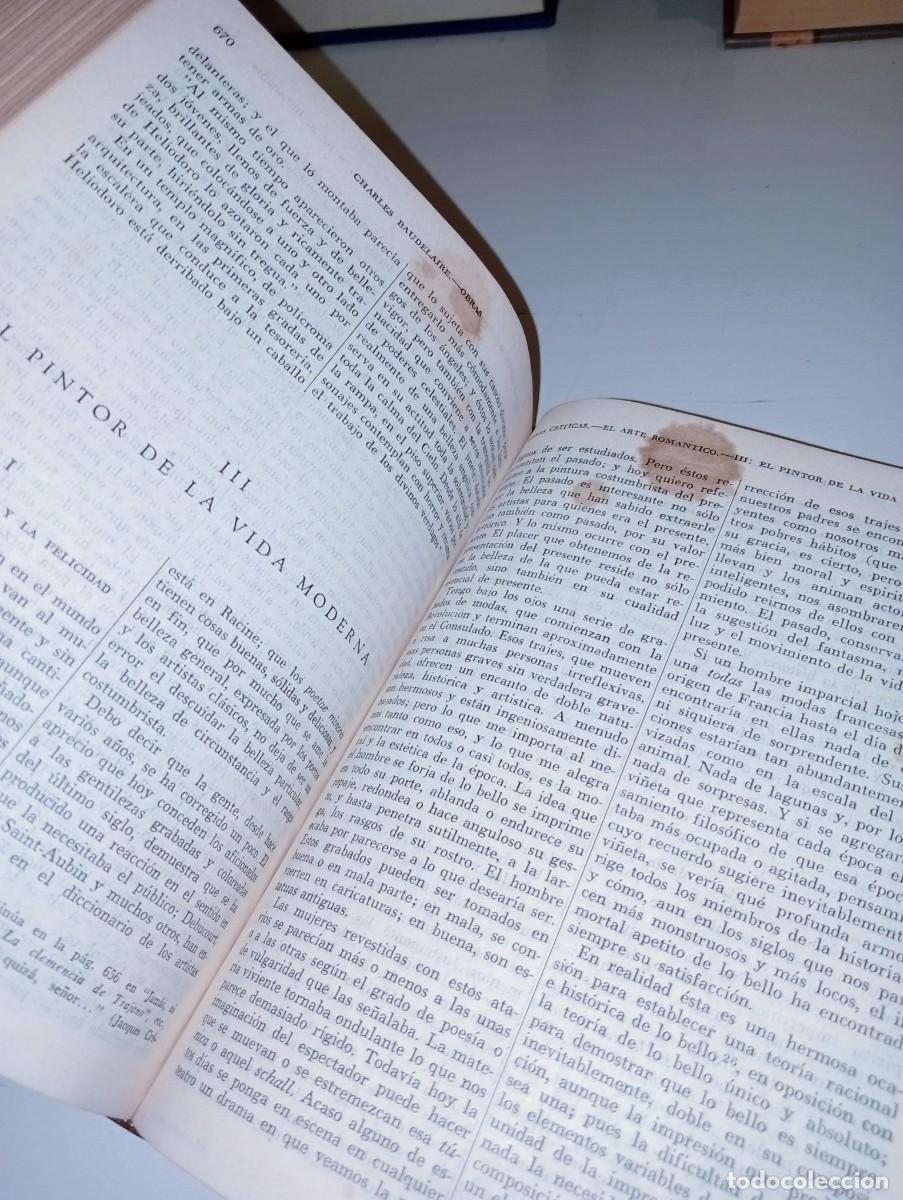 670
CHARLES BAUDELAIRE.—OBRAS
delanteras; y el que lo montaba parecía
tener armas de oro.
"Al mismo tiempo aparecieron otros
dos jóvenes, llenos de fuerza y de belle-
za, brillantes de gloria y ricamente tra-
jeados, que colocándose a uno y otro lado
de Heliodoro lo azotaron cada uno por
su parte, hiriéndolo sin tregua."
En un templo magnífico, de policroma
arquitectura, en las primeras gradas de
la escalera que conduce a la tesorería,
Heliodoro está derribado bajo un caballo
que lo sujeta con sus cascos
entregarlo más cómodamente a
gos de los ángeles; y éstos lo
vigor, pero también con la
nacidad que conviene a seres
de poderes celestiales. El
realmente de una belleza
serva en su actitud toda
toda la calma del Cielo. Desde lo
la rampa, en el piso superior, varios
sonajes contemplan con horror y
el trabajo de los divinos verdugos
III
L PINTOR DE LA VIDA MODERNA
I
Y LA FELICIDAD
n en el mundo
van al mu-
mente y sin
canti-
unque
está en Racine; que los poetae minores
tienen cosas buenas, sólidas y deliciosas, y
en fin, que por mucho que se ame
belleza general, expresada por los poetas
y los artistas clásicos, no deja de ser un
error, el descuidar la belleza particular
la belleza de circunstancia y el rasgo
costumbrista.
Debo decir que la gente, desde hace
varios años, se ha corregido un poco. El
aprecio que hoy conceden los aficionados
a las gentilezas grabadas y coloreadas
del último siglo, demuestra que se ha
producido una reacción en el sentido en
que la necesitaba el público; Debucourt,
Saint-Aubin y muchos otros, han en-
en el diccionario de los artistas
tinúa en la pág. 656 en
"La clemencia de Trajano"
quizá, señor..."
(Jacques
CRITICAS.—EL ARTE ROMANTICO.—III: EL PINTOR DE LA VIDA
de ser estudiados. Pero éstos re-
el pasado; y hoy quiero refe-
a la pintura costumbrista del pre-
El pasado es interesante no sólo
la belleza que han sabido extraerle
artistas para quienes era el presente,
también como pasado, por su valor
histórico. Y lo mismo ocurre con el pre-
sente. El placer que obtenemos de la re-
presentación del presente reside no sólo
la belleza de la que pueda estar re-
vestido, sino también en su cualidad
esencial de presente.
Tengo bajo los ojos una serie de gra-
bados de modas, que comienzan con la
Revolución y terminan aproximadamente
en el Consulado. Esos trajes, que mueven
a risa a muchas personas irreflexivas,
personas graves sin verdadera grave-
dad, ofrecen un encanto de doble natu-
raleza, histórica y artística. A menudo
son hermosos y están ingeniosamente di-
bujados; pero lo que me importa al me-
nos tanto como eso, y lo que me alegra
encontrar en todos o casi todos, es la mo-
ral y la estética de la época. La idea que
el hombre se forja de lo bello se imprime
en todo su porte, ablanda o endurece su
ropaje, redondea o hace anguloso su ges-
to, y hasta penetra sutilmente, a la lar-
ga, los rasgos de su rostro. El hombre
acaba por parecerse a lo que desearía ser.
Estos grabados pueden ser tomados en
buena o en mala parte; en mala, se con-
vierten en caricaturas; en buena, son es-
tatuas antiguas.
Las mujeres revestidas con estos ata-
víos se parecían más o menos a las unas
o a las otras según el grado de poesía o
de vulgaridad que las señalaba. La mate-
ria viviente tornaba ondulante lo que nos
parece demasiado rígido. Todavía hoy la
imaginación del espectador puede hacer
que se muevan o se estremezcan esa tú-
nica o aquel schall. Acaso alguno de es-
tos días se ponga en escena en cualquier
teatro un drama en que veamos la
rrección de esos trajes
nuestros padres se encon
yentes como nosotros m
tros pobres hábitos (que
su gracia, es cierto, pero
más bien moral y espirit
llevan y los animan acto
inteligentes, nos asombrarem
podido reírnos de ellos con
miento. El pasado, conserv
la sugestión del fantasma,
luz y el movimiento de la vid
presente.
Si un hombre imparcial hoje
una todas las modas francesas
origen de Francia hasta el día d
encontraría en ellas nada de
ni siquiera de sorprendente. Su
ciones estarían tan abundantem
vizadas como en la escala del
animal. Nada de lagunas y, por lo
nada de sorpresas. Y si se agregara
viñeta que representa cada época el
samiento filosófico de que esa époc
taba más ocupada o agitada, pensam
cuyo recuerdo sugiere inevitablement
viñeta, se vería qué profunda armo
rige todos los miembros de la historia
y cómo, aun en los siglos que nos pa
cen más monstruosos y más locos, el i
mortal apetito de lo bello ha encontrad
siempre su satisfacción.
En realidad ésta es una hermosa oca-
sión para establecer una teoría racional
e histórica de lo bello 26, en oposición con
la teoría de lo bello único y absoluto;
para demostrar que lo bello es siempre,
inevitablemente, doble en su compo-
sición, aunque la impresión
sea una; pues la dificultad
los elementos variables
unidad de la impresión
nada la
composición
todocoleccion